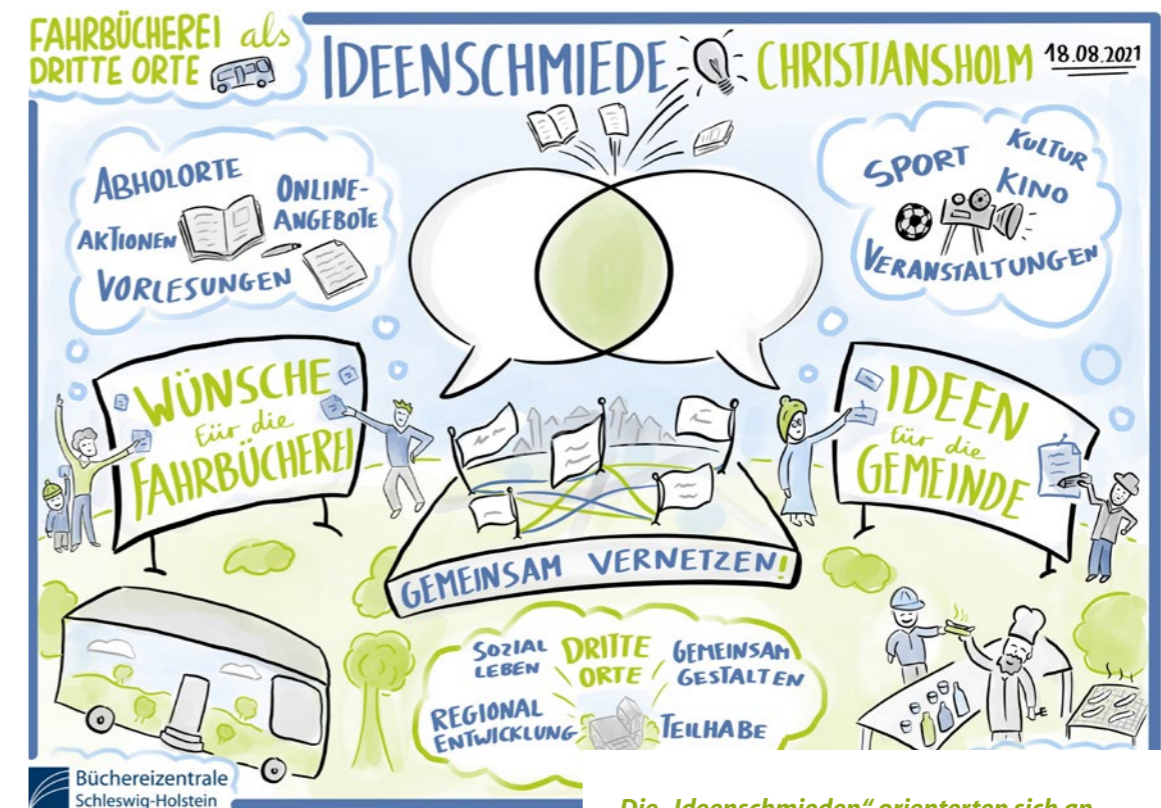 FAHRBÜCHEREI als
DRITTE ORTE
IDEENSCHMIEDE
CHRISTIANSHOLM
18.08.2021
ABHOLORTE
ONLINE-
ANGEBOTE
AKTIONEN
VORLESUNGEN
SPORT
KULTUR
KINO
VERANSTALTUNGEN
WÜNSCHE
für die
FAHRBÜCHEREI
IDEEN
für die
GEMEINDE
GEMEINSAM VERNETZEN!
SOZIAL
LEBEN
DRITTE
ORTE
GEMEINSAM
GESTALTEN
REGIONAL
ENTWICKLUNG
TEILHABE
Büchereizentrale
Schleswig-Holstein
Die „Ideenschmieden“ orienterten sich an